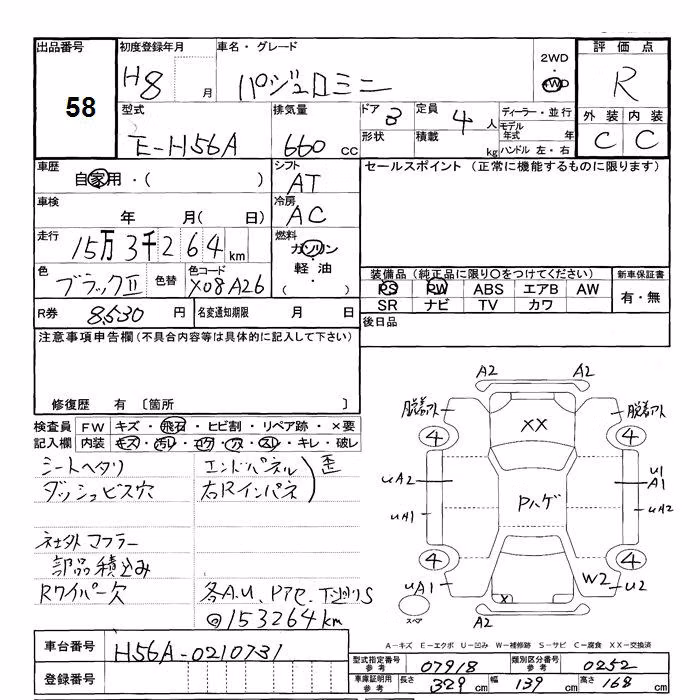 出品番号 58
初度登録年月 H8 月
車名・グレード パジェロミニ
2WD・4WD
評価点 R
外装 内装
C C
型式 E-H56A
排気量 660 cc
ドア 3
形状
定員 4 人
積載 kg
ディーラー・並行
モデル年式 年
ハンドル 左・右
車歴 自家用・( )
シフト AT
車検 年 月( 日)
冷房 AC
走行 15万3千264km
燃料 ガソリン・軽油・( )
色 ブラックⅡ 色替
色コード X08A26
R券 8530 円
名変通知期限 月 日
セールスポイント(正常に機能するものに限ります)
装備品(純正品に限り○をつけてください)
PS PW ABS エアB AW
SR ナビ TV カワ
新車保証書 有・無
後日品
注意事項申告欄(不具合内容等は具体的に記入して下さい)
修復歴 有 〔箇所 〕
検査員記入欄
FW キズ・飛石・ヒビ割・リペア跡・×要
内装 キズ・汚レ・コゲ・穴・スレ・キレ・破レ
シートヘタリ
ダッシュビス穴
エンドパネル
右Rインパネ
歪
社外マフラー
部品積込み
Rワイパー欠
各A.U、Pアセ、下廻りS
@153264km
A2 A2
脱着アト 脱着アト
4 XX 4
UA2 U1
A1
Pハゲ
UA1 UA2
4 4
UA1 W2 U2
X1
スペア A2
車台番号 H56A-0210731
登録番号
A-キズ E-エクボ U-凹み W-補修跡 S-サビ C-腐食 XX-交換済
型式指定番号 参考 07918
類別区分番号 参考 0252
車庫証明用 参考 長さ 329 cm 幅 139 cm 高さ 168 cm